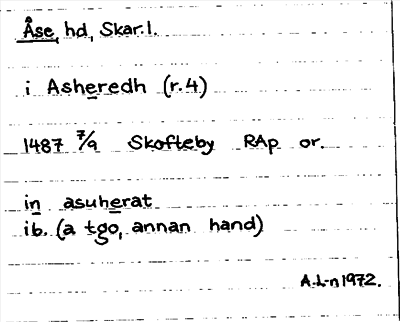 Åse, hd, Skar.l.
i Asheredh (r.4)
1487 7/9 Skofteby RAp or.
in asuherat
ib. (a tgo, annan hand)
A.L-n 1972.